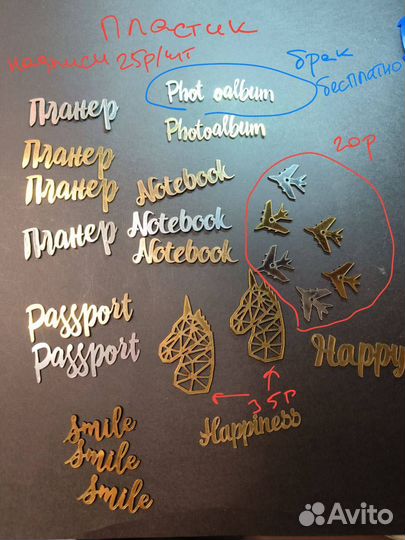 Пластик
надписи 25р/шт
брак
бесплатно
Phot oalbum
Планер
Photoalbum
20р
Планер
Планер
Notebook
Планер
Notebook
Notebook
Passport
Passport
Happy
35р
Happiness
Smile
Smile
Smile
Avito